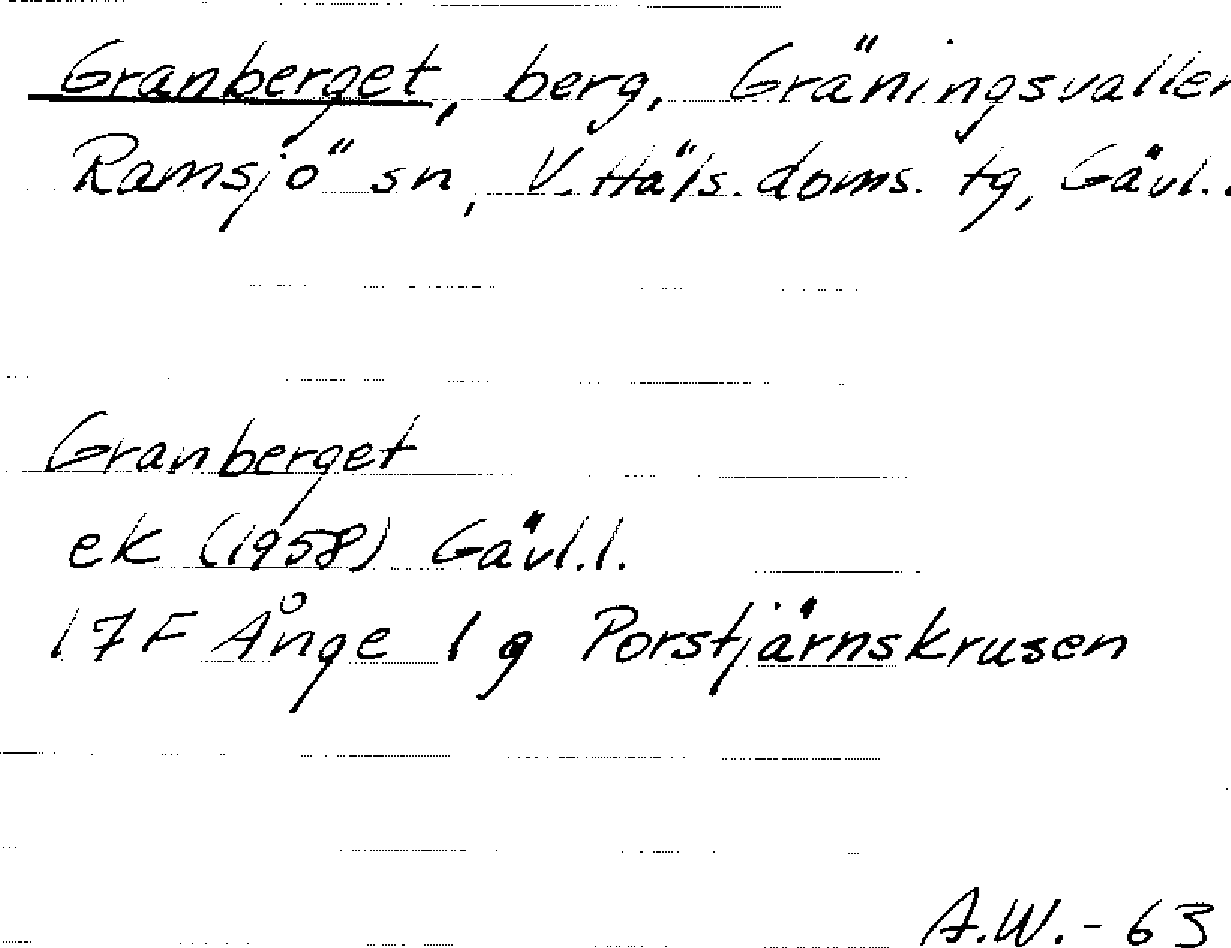 Granberget, berg, Gräningsvallen
Ramsjö sn, V. Häls. doms. tg, Gävl.
Granberget
ek (1958) Gävl.l.
17F Ånge 1 g Porstjärnskrusen
A.W.-63